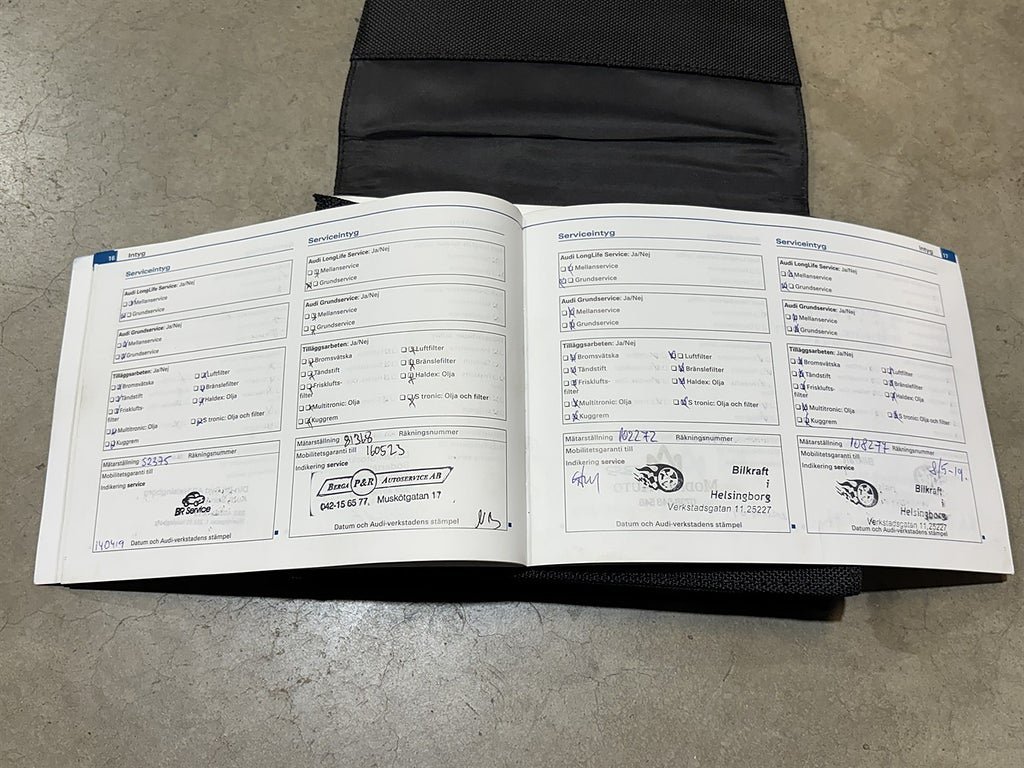 16 Intyg
Serviceintyg
Audi LongLife Service: Ja/Nej
Mellanservice
Grundservice
Audi Grundservice: Ja/Nej
Mellanservice
Grundservice
Tilläggsarbeten: Ja/Nej
Bromsvätska
Luftfilter
Tändstift
Bränslefilter
Friskluftsfilter
Haldex: Olja
Multitronic: Olja
S tronic: Olja och filter
Kuggrem
Mätarställning 52375
Mobilitetsgaranti till
Indikering service
BR Service
140419 Datum och Audi-verkstadens stämpel
Serviceintyg
Audi LongLife Service: Ja/Nej
Mellanservice
Grundservice
Audi Grundservice: Ja/Nej
Mellanservice
Grundservice
Tilläggsarbeten: Ja/Nej
Bromsvätska
Luftfilter
Tändstift
Bränslefilter
Frisklufts-
filter
Haldex: Olja
Multitronic: Olja
S tronic: Olja och filter
Kuggrem
Mätarställning 81368 Räkningsnummer
Mobilitetsgaranti till 160523
Indikering service
BERGA P&R AUTOSERVICE AB
042-15 65 77, Muskötgatan 17
Datum och Audi-verkstadens stämpel
Serviceintyg
Audi LongLife Service: Ja/Nej
Mellanservice
Grundservice
Audi Grundservice: Ja/Nej
Mellanservice
Grundservice
Tilläggsarbeten: Ja/Nej
Bromsvätska
Luftfilter
Tändstift
Bränslefilter
Frisklufts-
filter
Haldex: Olja
Multitronic: Olja
S tronic: Olja och filter
Kuggrem
Mätarställning 102272 Räkningsnummer
Mobilitetsgaranti till
Indikering service
Bilkraft
i
Helsingborg
Verkstadsgatan 11,25227
Datum och Audi-verkstadens stämpel
Intyg 17
Serviceintyg
Audi LongLife Service: Ja/Nej
Mellanservice
Grundservice
Audi Grundservice: Ja/Nej
Mellanservice
Grundservice
Tilläggsarbeten: Ja/Nej
Bromsvätska
Luftfilter
Tändstift
Bränslefilter
Frisklufts-
filter
Haldex: Olja
Multitronic: Olja
S tronic: Olja och filter
Kuggrem
Mätarställning 108277 Räkningsnummer
Mobilitetsgaranti till
Indikering service
8/5-19.
Bilkraft
i
Helsingborg
Verkstadsgatan 11,25227
Datum och Audi-verkstadens stämpel